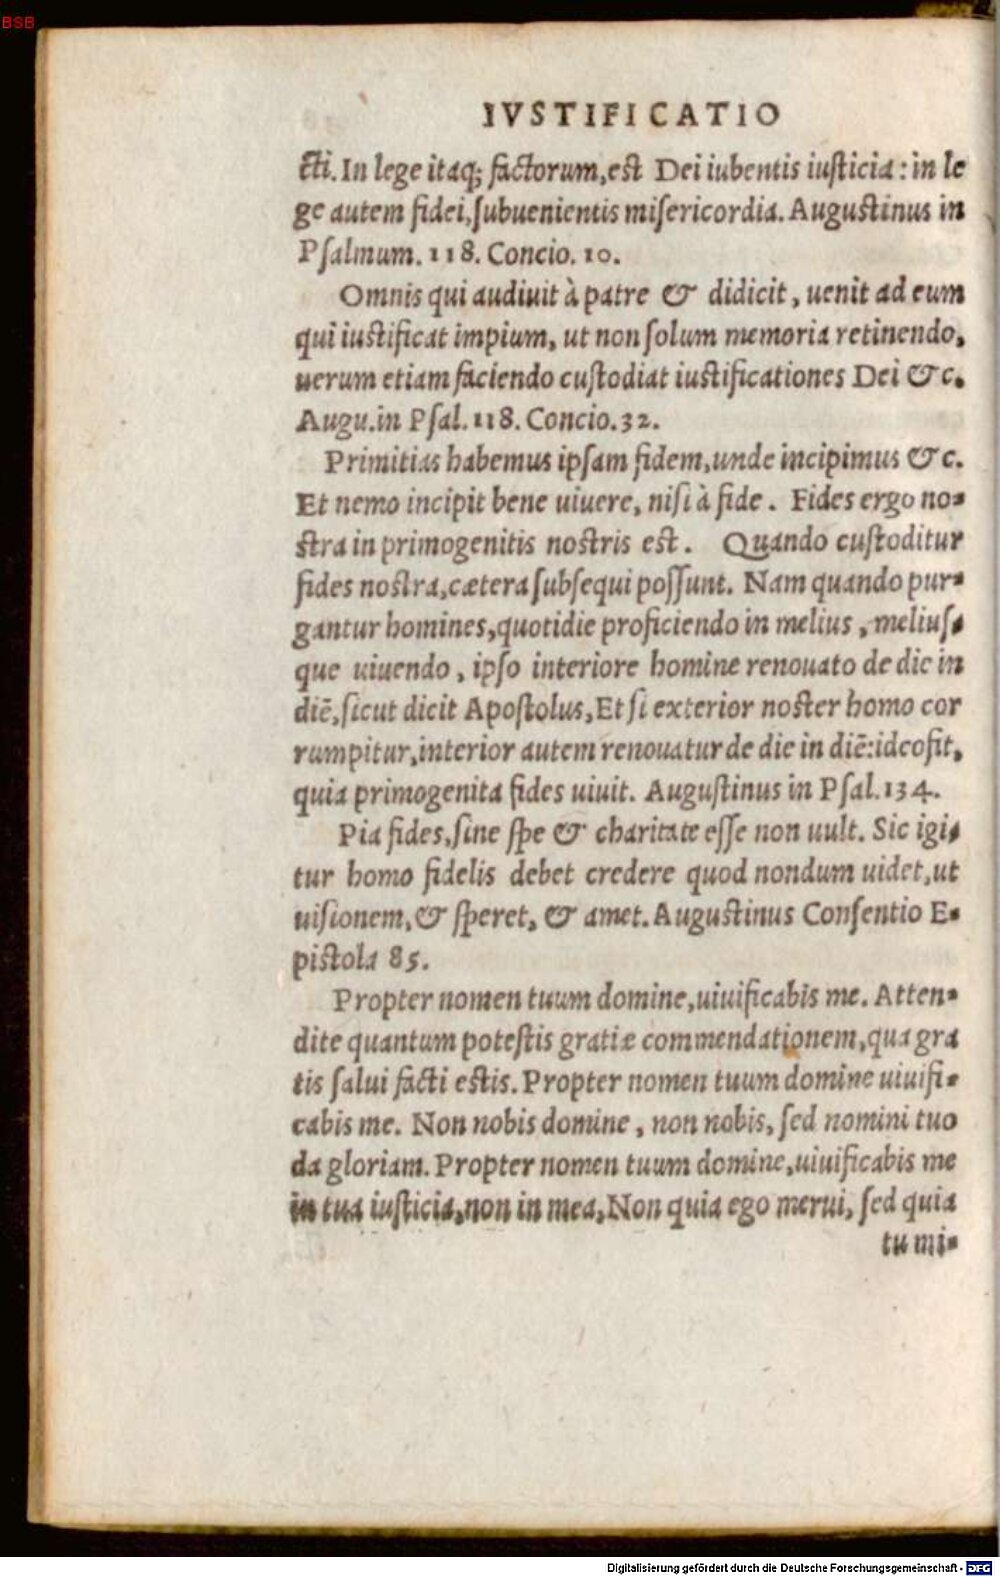 BSB
IVSTIFICATIO
cti. In lege itaq; factorum, est Dei iubentis iusticia: in le
ge autem fidei, subuenientis misericordia. Augustinus in
Psalmum. 118. Concio. 10.
Omnis qui audiuit à patre & didicit, uenit ad eum
qui iustificat impium, ut non solum memoria retinendo,
uerum etiam faciendo custodiat iustificationes Dei &c.
Augu. in Psal. 118. Concio. 32.
Primitias habemus ipsam fidem, unde incipimus &c.
Et nemo incipit bene uiuere, nisi à fide. Fides ergo no-
stra in primogenitis nostris est. Quando custoditur
fides nostra, cætera subsequi possunt. Nam quando pur-
gantur homines, quotidie proficiendo in melius, melius-
que uiuendo, ipso interiore homine renouato de die in
diē, sicut dicit Apostolus, Et si exterior noster homo cor
rumpitur, interior autem renouatur de die in diē: ideo fit,
quia primogenita fides uiuit. Augustinus in Psal. 134.
Pia fides, sine spe & charitate esse non uult. Sic igi-
tur homo fidelis debet credere quod nondum uidet, ut
uisionem, & speret, & amet. Augustinus Consentio E-
pistola 85.
Propter nomen tuum domine, uiuificabis me. Atten-
dite quantum potestis gratiæ commendationem, qua gra
tis salui facti estis. Propter nomen tuum domine uiuifi-
cabis me. Non nobis domine, non nobis, sed nomini tuo
da gloriam. Propter nomen tuum domine, uiuificabis me
in tua iusticia, non in mea, Non quia ego merui, sed quia
tu mi-
Digitalisierung gefördert durch die Deutsche Forschungsgemeinschaft - DFG